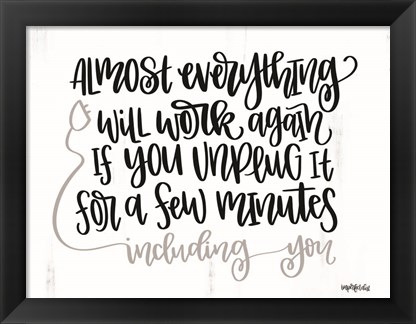 Almost everything
will work again
if you unplug it
for a few minutes
including you